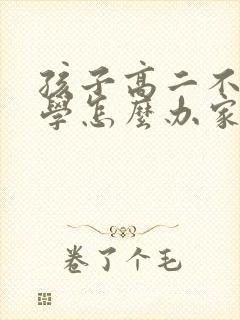 孩子高二不
學怎麼办家
卷了个毛